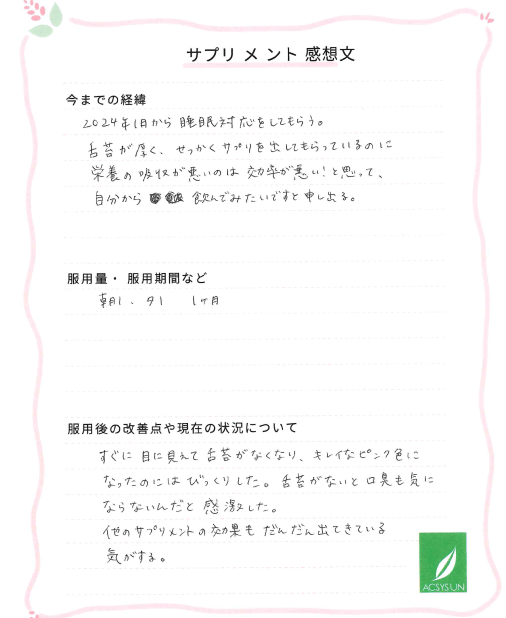 サプリメント感想文
今までの経緯
2024年1月から 睡眠対応をしてもらう。
舌苔が厚く、せっかくサプリを出してもらっているのに
栄養の吸収が悪いのは 効率が悪い!と思って、
自分から 飲んでみたいですと申し出る。
服用量・服用期間など
朝1、夕1 1ヶ月
服用後の改善点や現在の状況について
すぐに目に見えて舌苔がなくなり、キレイなピンク色に
なったのにはびっくりした。舌苔がないと口臭も気に
ならないんだと感激した。
他のサプリメントの効果も だんだん出てきている
気がする。
ACSYSUN